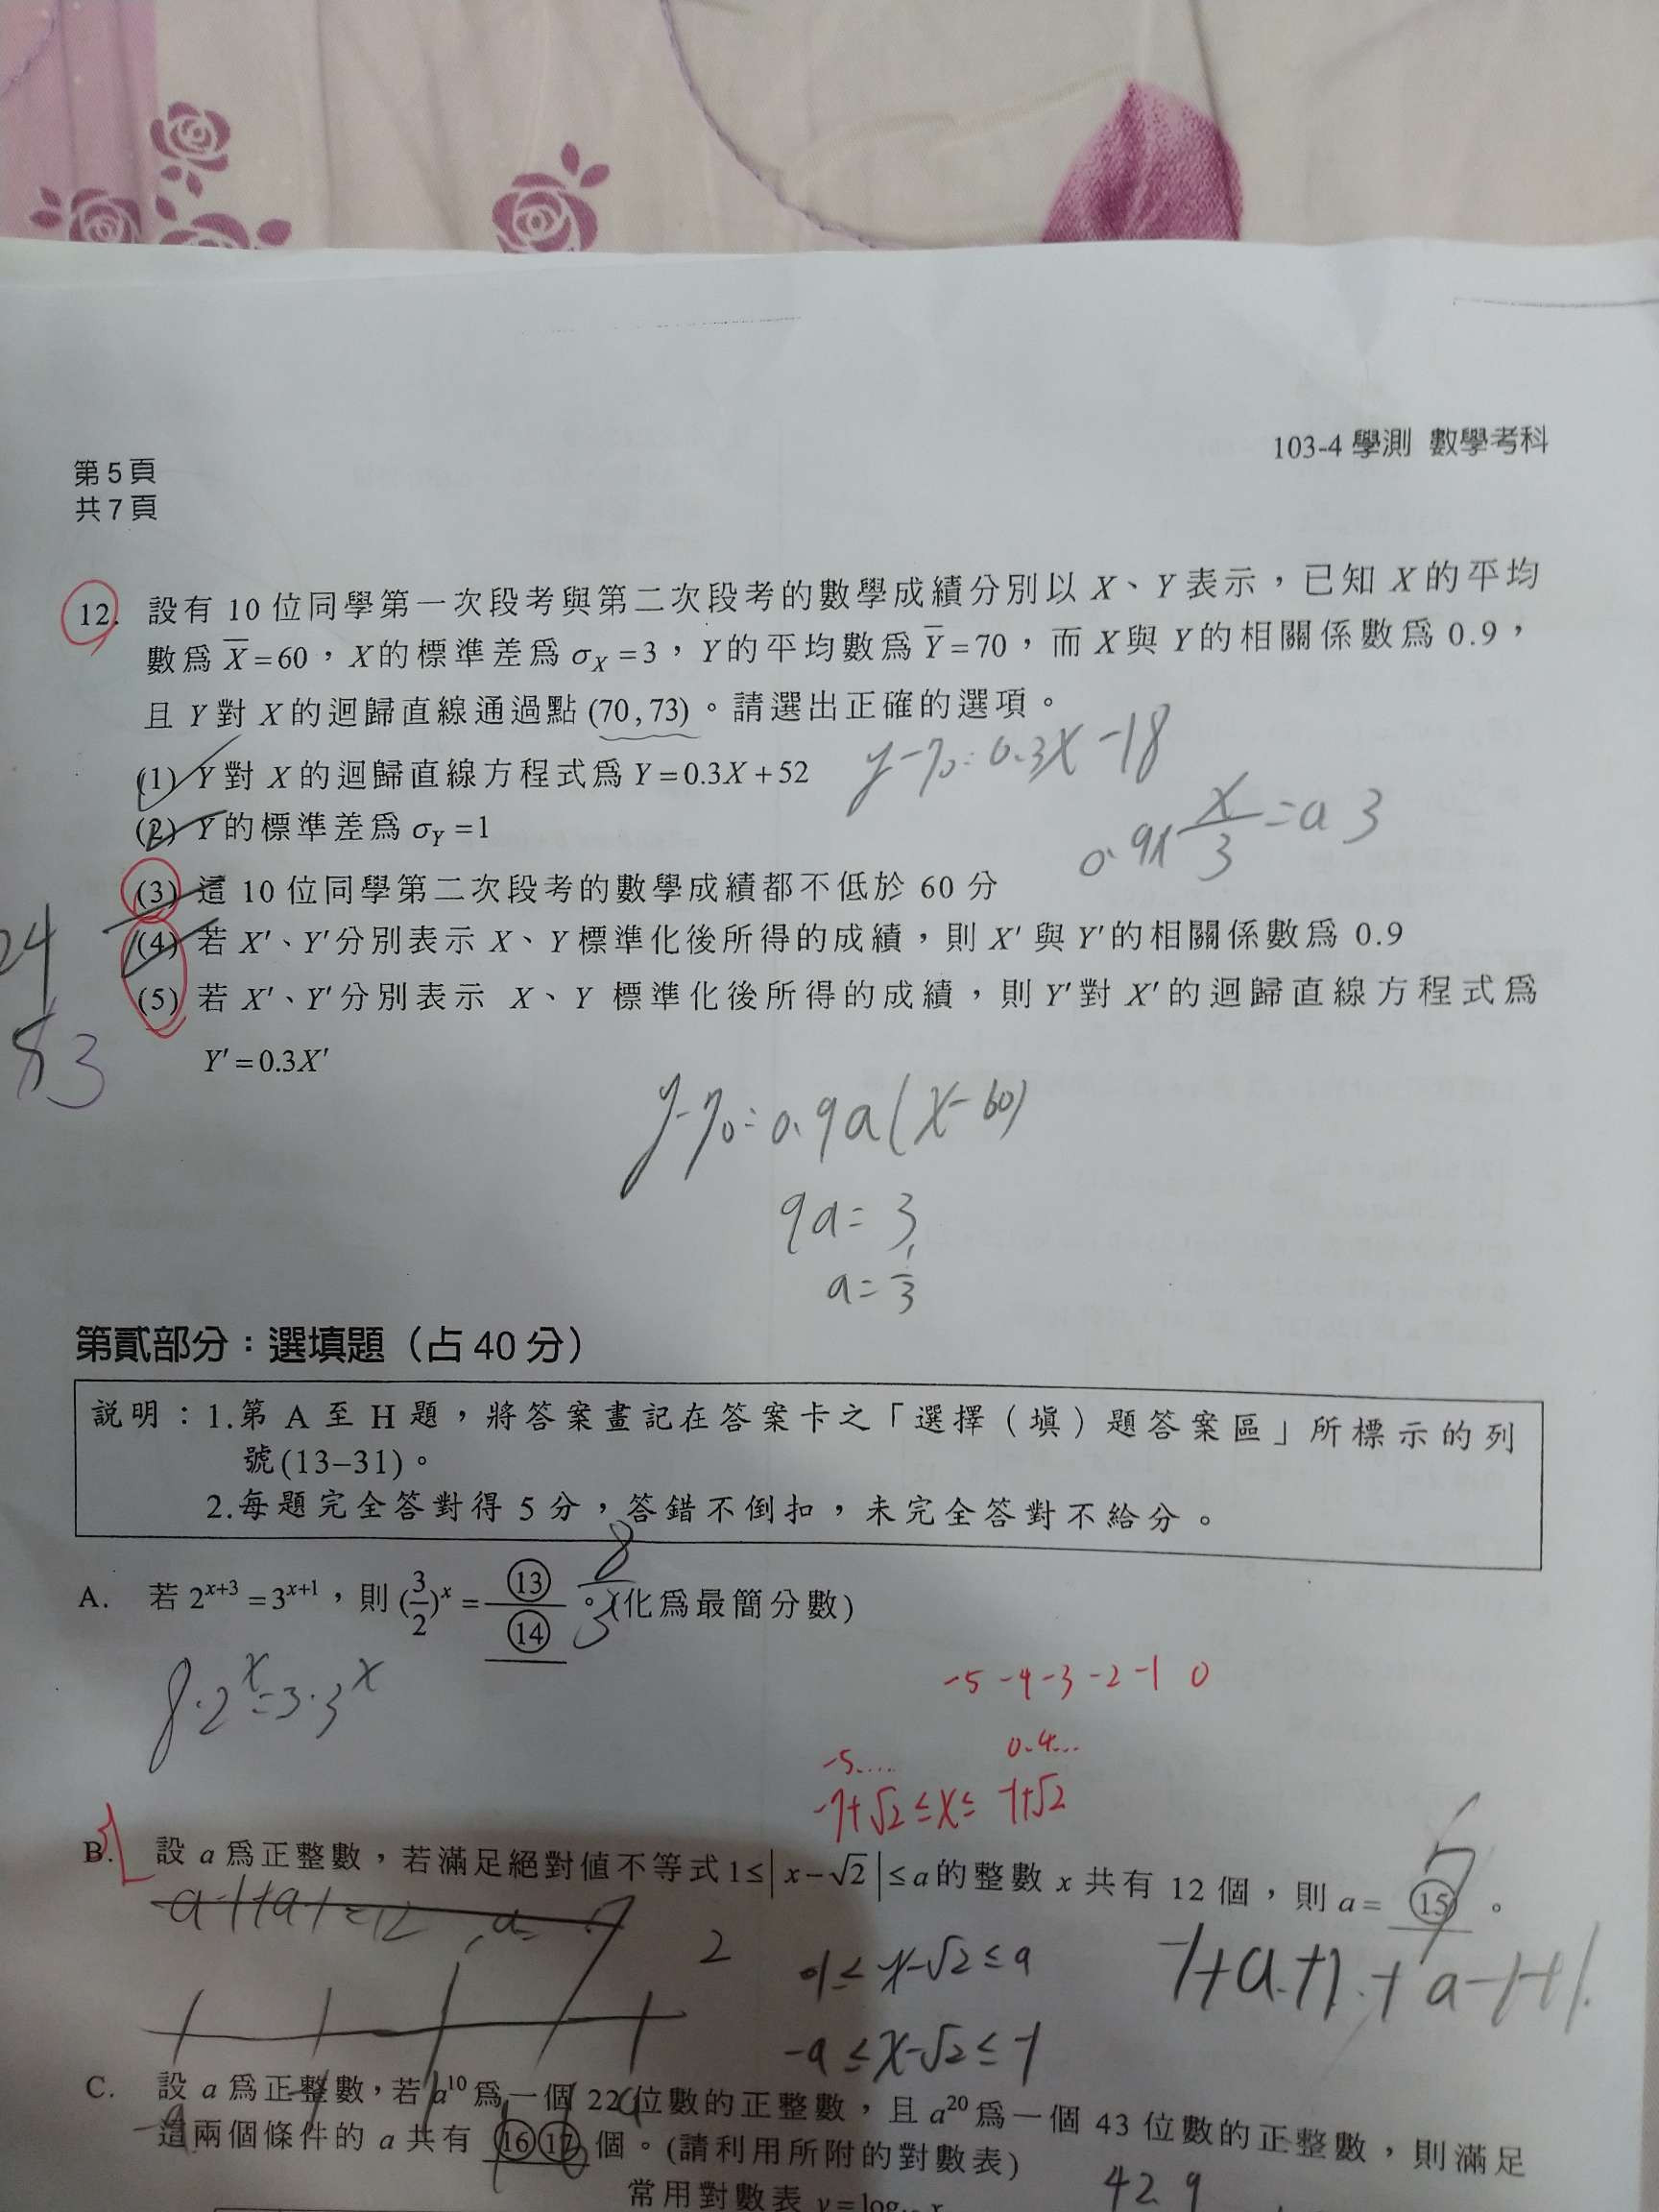 103-4 學測 數學考科
第 5 頁
共 7 頁
12. 設有 10 位同學第一次段考與第二次段考的數學成績分別以 X、Y 表示，已知 X 的平均
數爲 X̄ = 60，X 的標準差爲 σX = 3，Y 的平均數爲 Ȳ = 70，而 X 與 Y 的相關係數爲 0.9，
且 Y 對 X 的迴歸直線通過點 (70, 73)。請選出正確的選項。
y-70=0.3x-18
(1) Y 對 X 的迴歸直線方程式爲 Y = 0.3X + 52
(2) Y 的標準差爲 σY = 1
0.9× x/3 = a 3
(3) 這 10 位同學第二次段考的數學成績都不低於 60 分
(4) 若 X′、Y′分別表示 X、Y 標準化後所得的成績，則 X′ 與 Y′的相關係數爲 0.9
24
(5) 若 X′、Y′分別表示 X、Y 標準化後所得的成績，則 Y′對 X′的迴歸直線方程式爲
Y′ = 0.3X′
3
y-70=0.9a(x-60)
9a=3
a=1/3
第貳部分：選填題（占 40 分）
説明：1.第 A 至 H 題，將答案畫記在答案卡之「選擇（填）題答案區」所標示的列
號(13–31)。
2.每題完全答對得 5 分，答錯不倒扣，未完全答對不給分。
A. 若 2^(x+3) = 3^(x+1)，則 (3/2)^x = ⑬/⑭。(化爲最簡分數)
8/3
8·2^x=3·3^x
-5 -4 -3 -2 -1 0
-5.... 0.4...
-7+√2 ≤x≤ -1+√2
B. 設 a 爲正整數，若滿足絕對值不等式 1≤|x−√2|≤a 的整數 x 共有 12 個，則 a= ⑮。
2
1≤x-√2≤a
-1+a+1+a-1+1
-a≤x-√2≤-1
C. 設 a 爲正整數，若 a^10 爲一個 22 位數的正整數，且 a^20 爲一個 43 位數的正整數，則滿足
這兩個條件的 a 共有 ⑯⑰ 個。(請利用所附的對數表)
42 9
常用對數表 y = log₁₀ x